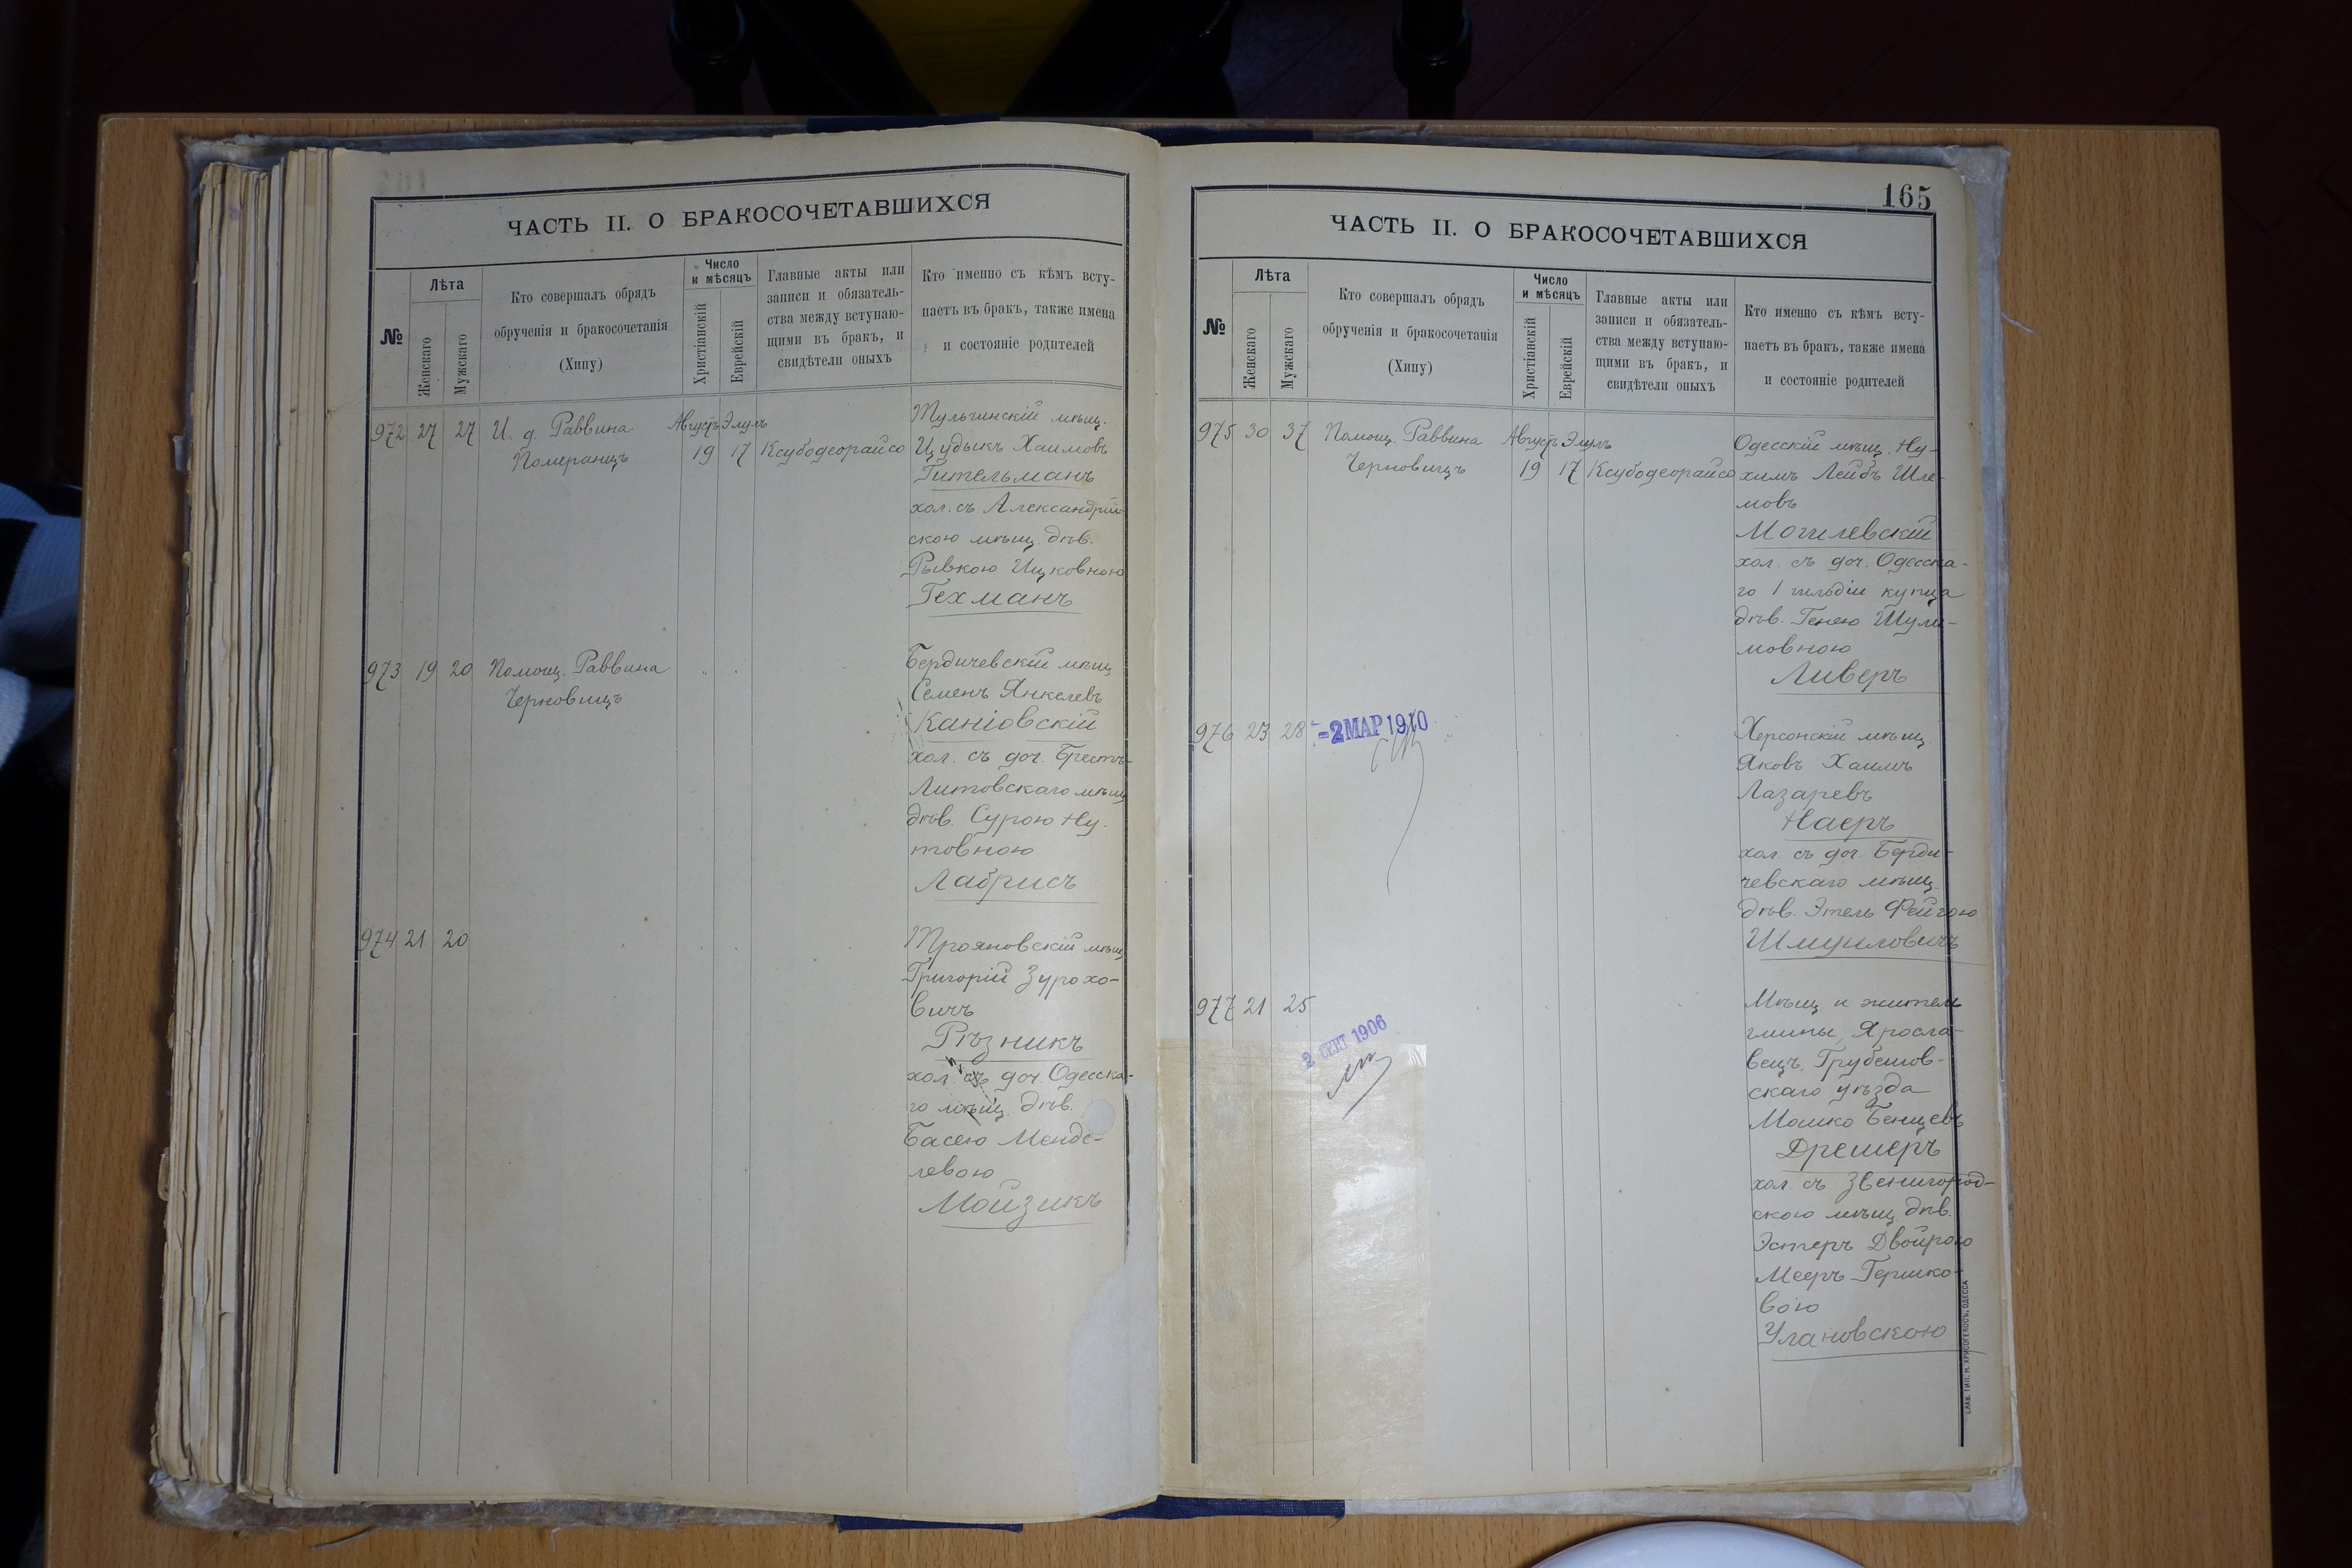 ЧАСТЬ II. О БРАКОСОЧЕТАВШИХСЯ
№
Лѣта
Женскаго
Мужскаго
Кто совершалъ обрядъ
обрученія и бракосочетанія
(Хипу)
Число
и мѣсяцъ
Христіанскій
Еврейскій
Главные акты или
записи и обязатель-
ства между вступаю-
щими въ бракъ, и
свидѣтели оныхъ
Кто именно съ кѣмъ всту-
паетъ въ бракъ, также имена
и состояніе родителей
972 27 27 И. д. Раввина
Померанцъ
Августъ Элулъ
19 17 Ксубодеорайсо
Тульчинскій мѣщ.
Цудыкъ Хаимовъ
Гительманъ
хол. съ Александрій-
скою мѣщ. дѣв.
Рывкою Ицковною
Гехманъ
973 19 20 Помощ. Раввина
Черновицъ
Бердичевскій мѣщ
Семенъ Янкелевъ
Каніовскій
хол. съ доч. Брестъ-
Литовскаго мѣщ
дѣв. Сурою Ну-
товною
Лабрисъ
974 21 20
Трояновскій мѣщ
Григорій Зурохо-
вичъ
Рѣзникъ
хол. съ доч. Одесска-
го мѣщ. дѣв.
Басею Менде-
левою
Мойзикъ
165
ЧАСТЬ II. О БРАКОСОЧЕТАВШИХСЯ
№
Лѣта
Женскаго
Мужскаго
Кто совершалъ обрядъ
обрученія и бракосочетанія
(Хипу)
Число
и мѣсяцъ
Христіанскій
Еврейскій
Главные акты или
записи и обязатель-
ства между вступаю-
щими въ бракъ, и
свидѣтели оныхъ
Кто именно съ кѣмъ всту-
паетъ въ бракъ, также имена
и состояніе родителей
975 30 37 Помощ. Раввина
Черновицъ
Августъ Элулъ
19 17 Ксубодеорайсо
Одесскій мѣщ. Ну-
химъ Лейбъ Шле-
мовъ
Могилевскій
хол. съ доч. Одесска-
го 1 гильдіи купца
дѣв. Генею Шули-
мовною
Ливеръ
976 23 28
-2 МАР 1910
Херсонскій мѣщ
Яковъ Хаимъ
Лазаревъ
Наеръ
хол. съ доч. Берди-
чевскаго мѣщ.
дѣв. Этель Фейгою
Шмуиловичъ
977 21 25
2 СЕНТ 1906
Мѣщ и житель
гмины Яросла-
вецъ, Грубешов-
скаго уѣзда
Мошко Бенцевъ
Дрешеръ
хол. съ Звенигород-
скою мѣщ. дѣв.
Эстеръ Двойрою
Мееръ-Гершко-
вою
Улановскою
СЛАВ. ТИП. Н. ХРИСОГЕЛОСЪ, ОДЕССА